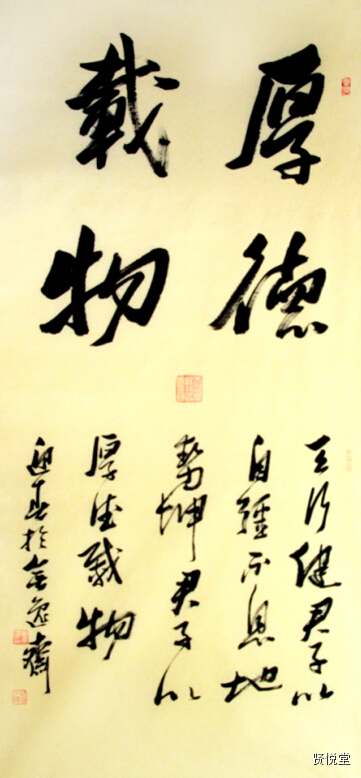 厚德
載物
天行健君子以
自彊不息地
勢坤君子以
厚德載物
迎春於逸齋
贤悦堂